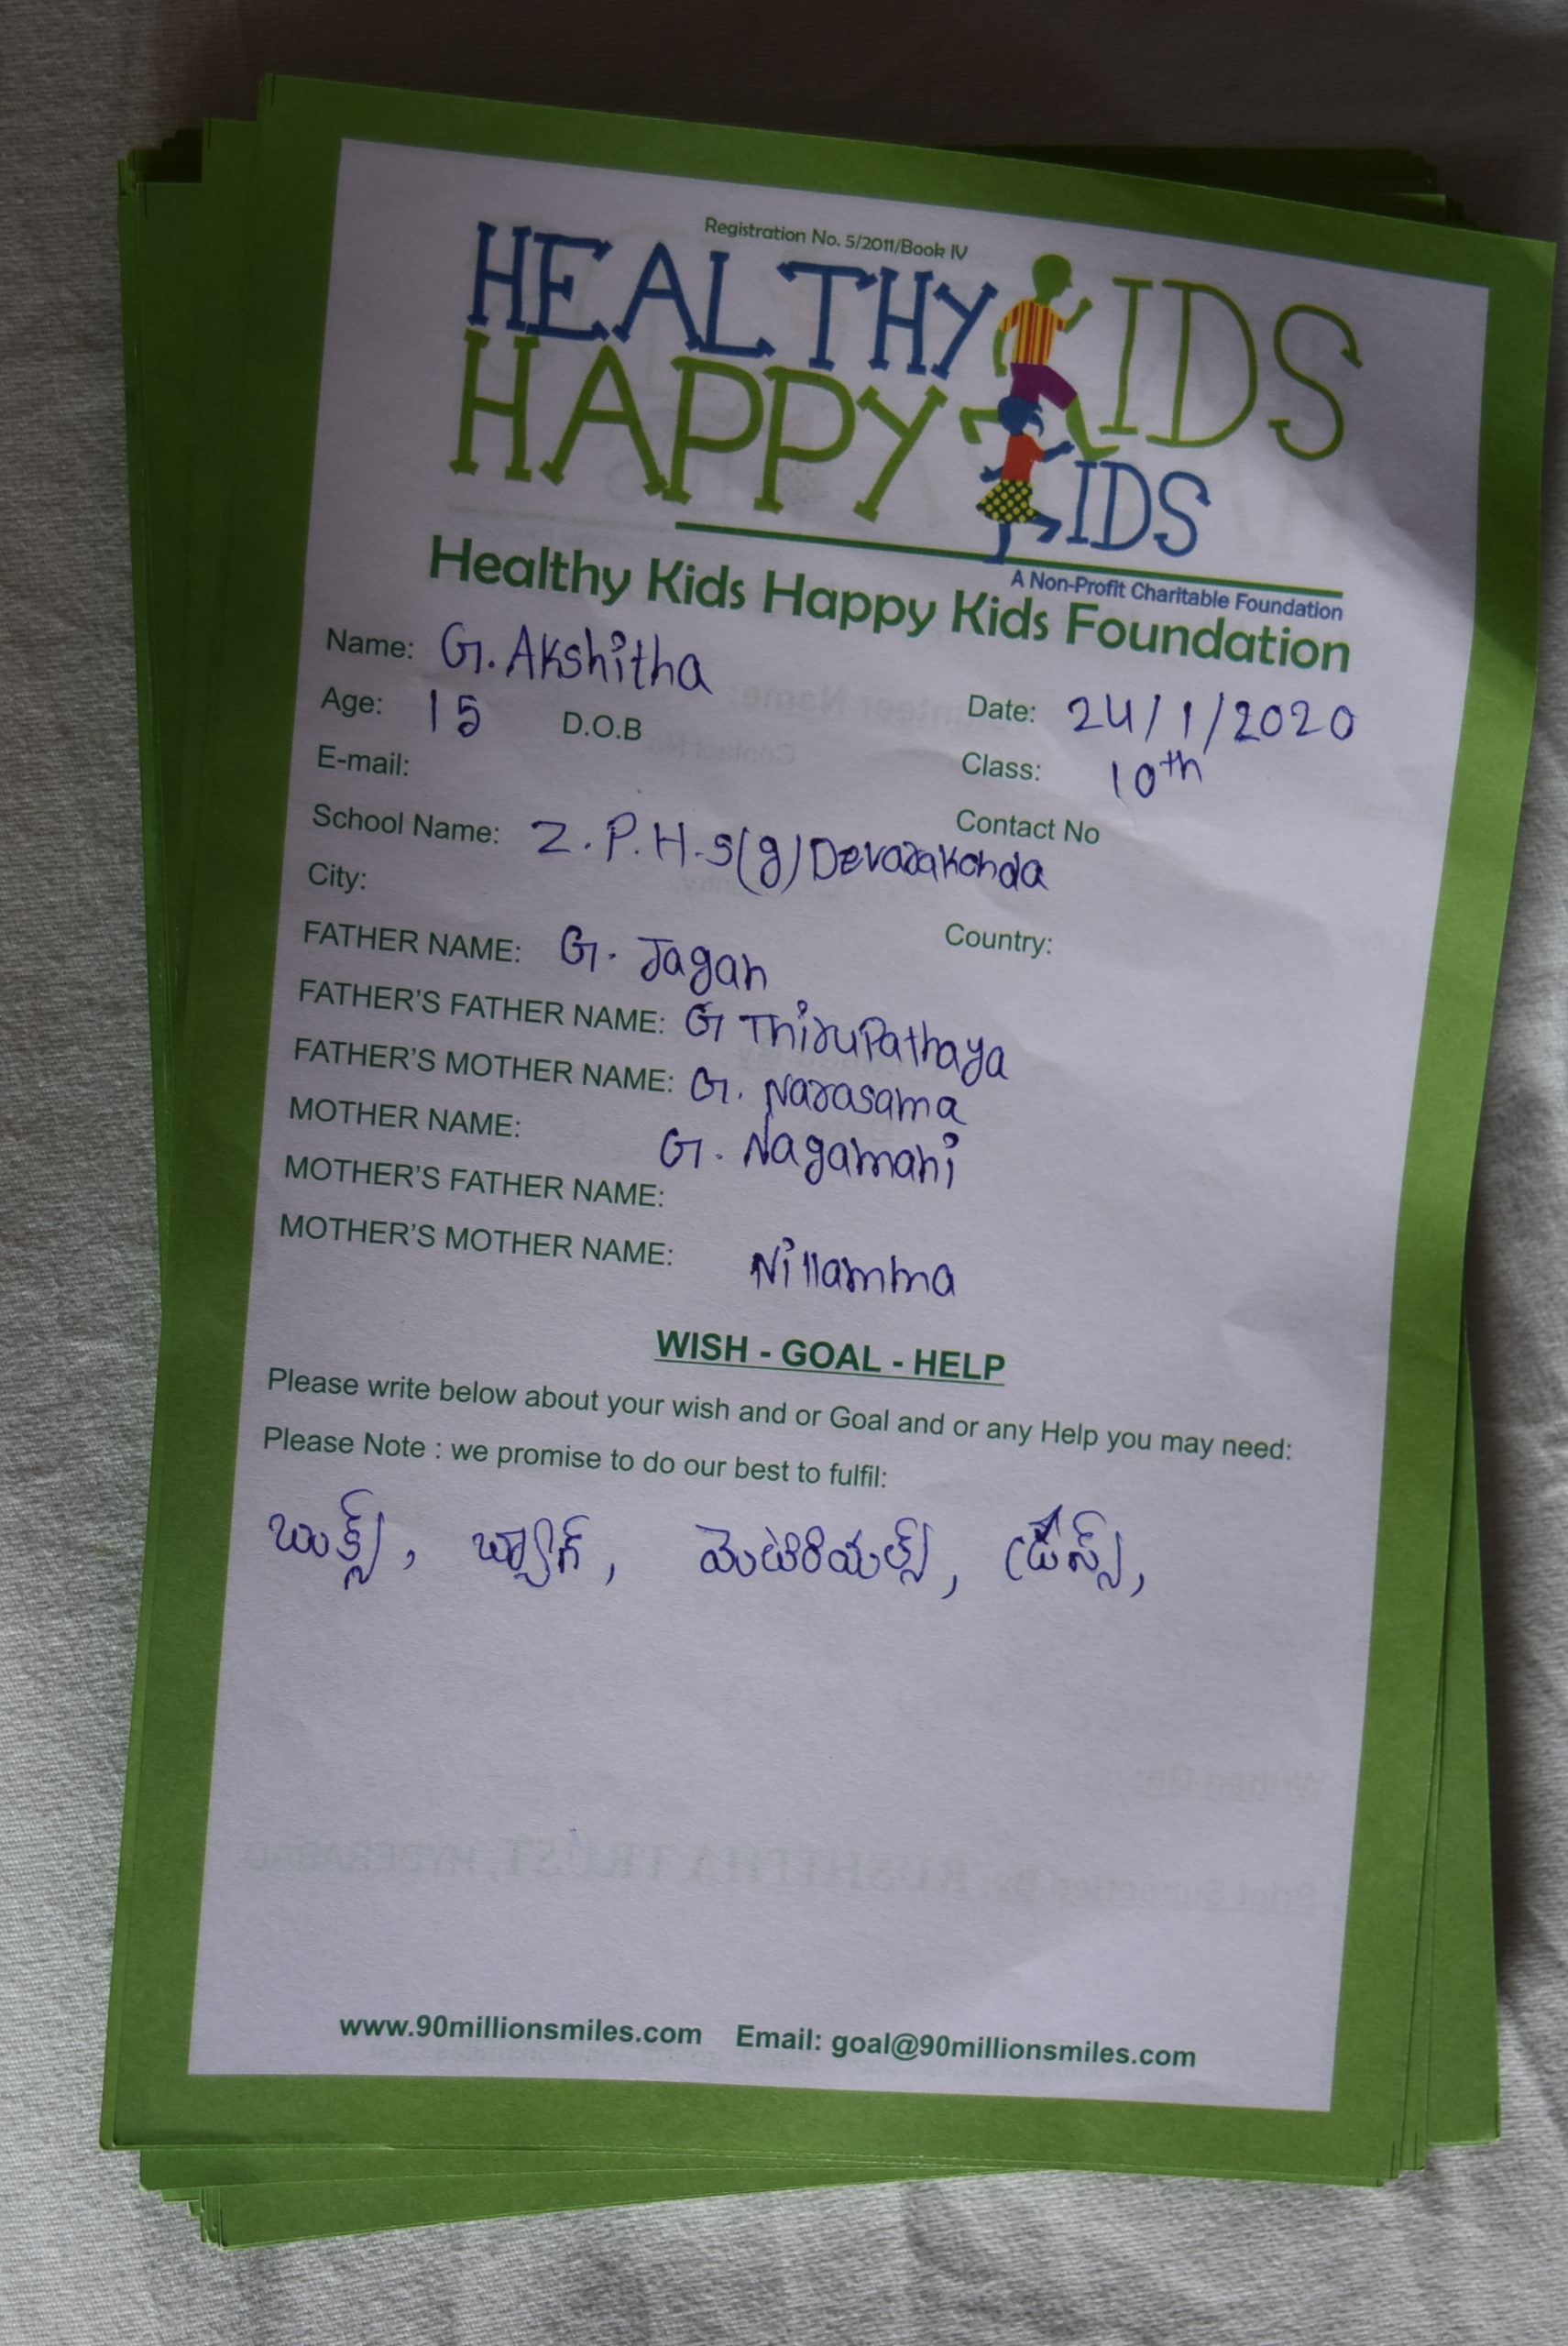 Registration No. 5/2011/Book IV
HEALTHY KIDS
HAPPY KIDS
A Non-Profit Charitable Foundation
Healthy Kids Happy Kids Foundation
Name: G. Akshitha
Date: 24/1/2020
Age: 15 D.O.B
Class: 10th
E-mail:
Contact No
School Name: Z.P.H.S(g) Devarakonda
City:
Country:
FATHER NAME: G. Jagan
FATHER'S FATHER NAME: G Thirupathaya
FATHER'S MOTHER NAME: G. Narasama
MOTHER NAME: G. Nagamani
MOTHER'S FATHER NAME:
MOTHER'S MOTHER NAME: Nillamma
WISH - GOAL - HELP
Please write below about your wish and or Goal and or any Help you may need:
Please Note : we promise to do our best to fulfil:
బుక్స్, బ్యాగ్, మెటిరియల్స్, డ్రేస్స్,
www.90millionsmiles.com Email: goal@90millionsmiles.com